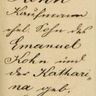 Kohn
Kaufmann
ehel. Sohn des
Emanuel
Kohn und
der Kathari-
na geb.